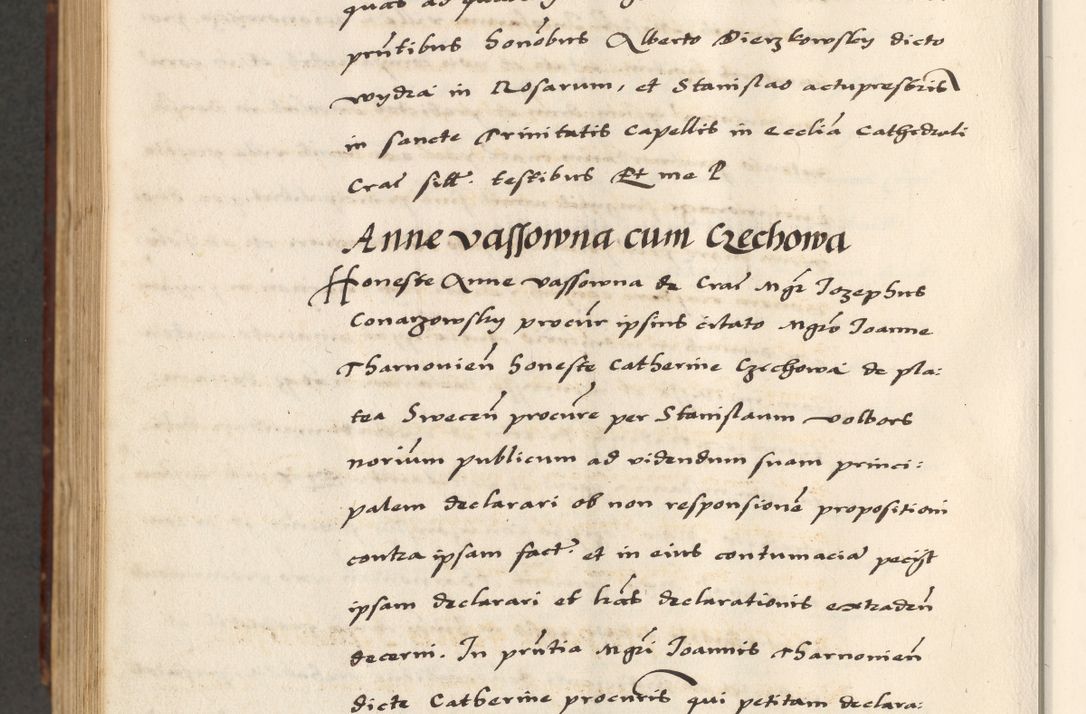 quas ad
prñtibus honobus Alberto Dierzkowsky dicto
wydra in Rosarum, et Stanislao actupresbris
in sancte Trinitatis Capellis in Ecclia Cathedrali
Crac sill. testibus Et me P
Anne Vassowna cum Czechowa
Honeste Anne Vassowna de Crac Mgr Iozephus
Conarzowsky procur ipsius citato Mgro Ioanne
Tharnovien honeste Catherine Czechowa de pla:
tea Swecen procure per Stanislaum Wolbors
norium publicum ad videndum suam princi:
palem declarari ob non responsione propositioni
contra ipsam fact. et in eius contumacia pecyt
ipsam declarari et lras declarationis extraden
decerni. In prñtia Mgri Ioannis Tharnovien
dicte Catherine procuris qui petitam declara: